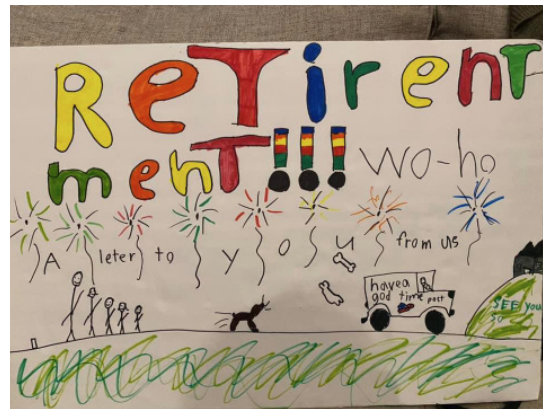 ReTirenT
menT!!! wo-ho
A leter to you from us
have a
god time
post
SEE you
so